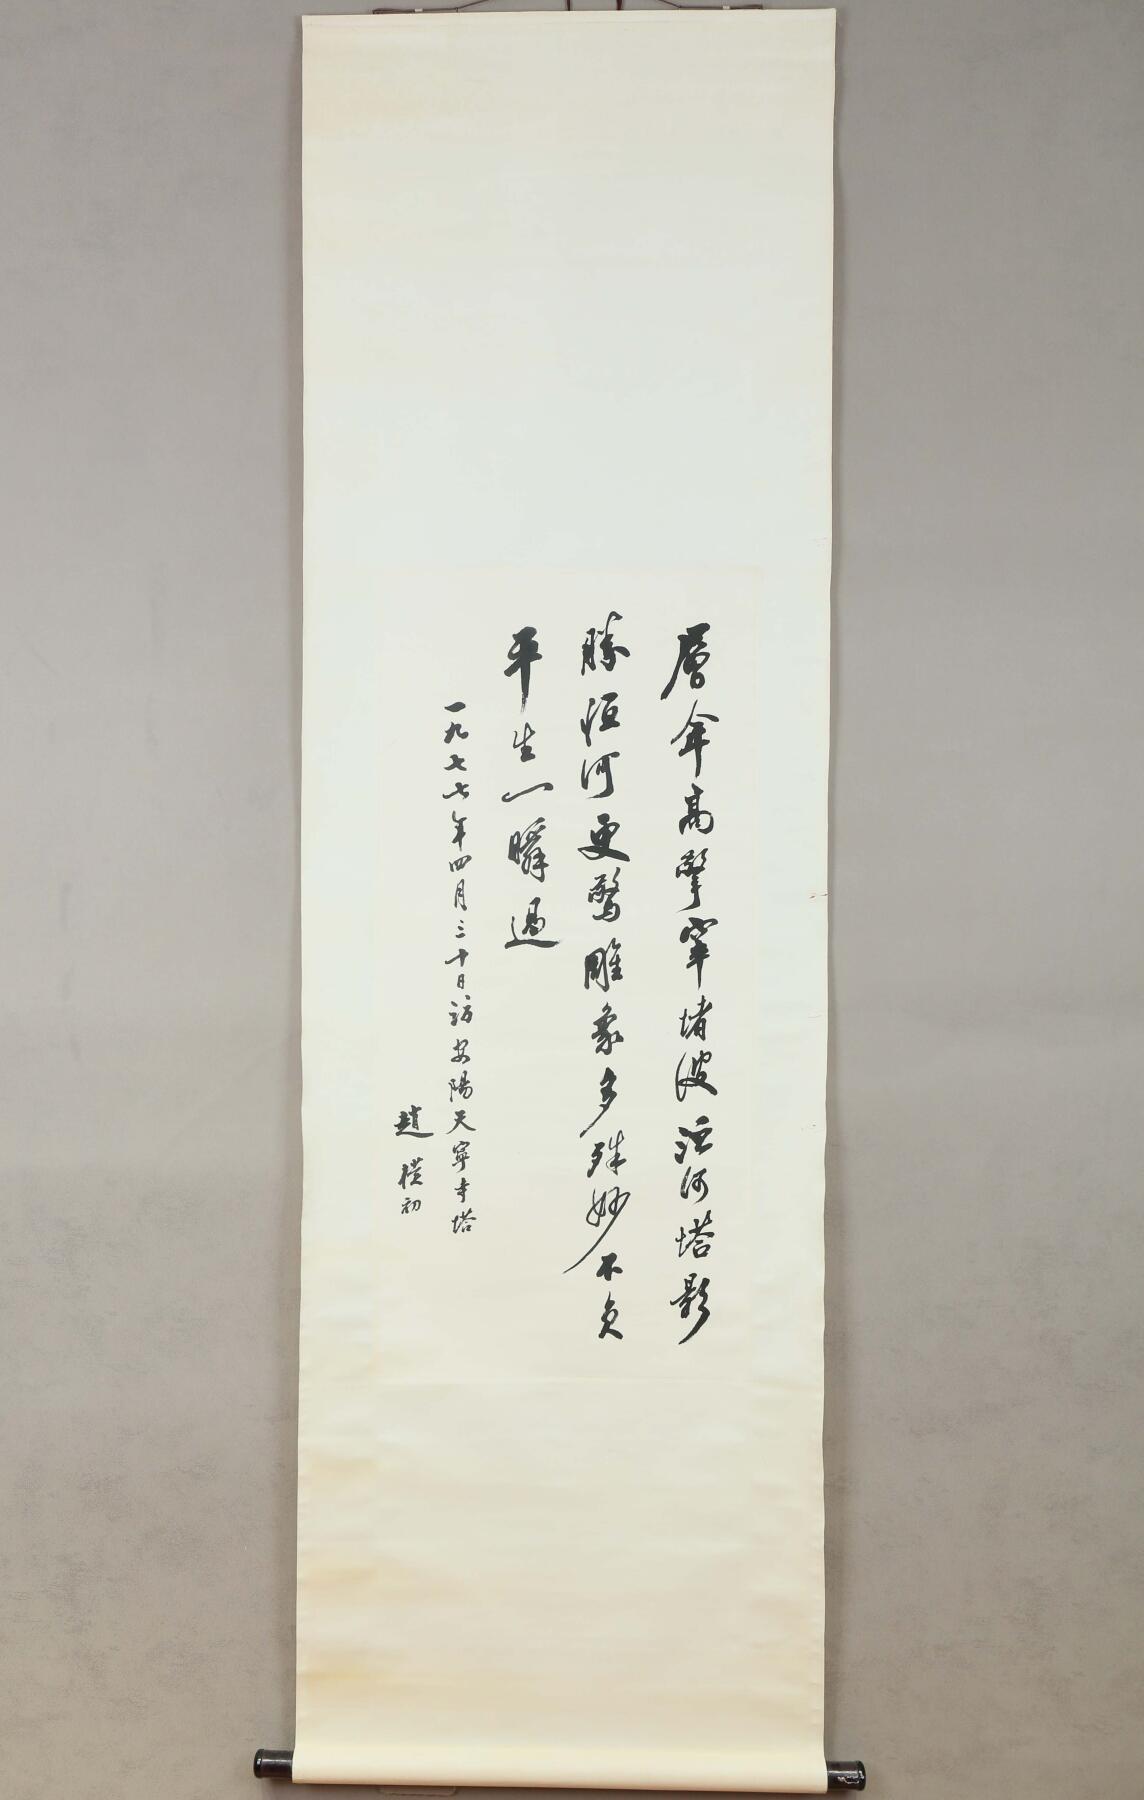 層傘高擎窣堵波洹河塔影
勝恒河更驚雕象多殊妙不負
平生一瞬過
一九七七年四月三十日訪安陽天寧寺塔
趙樸初